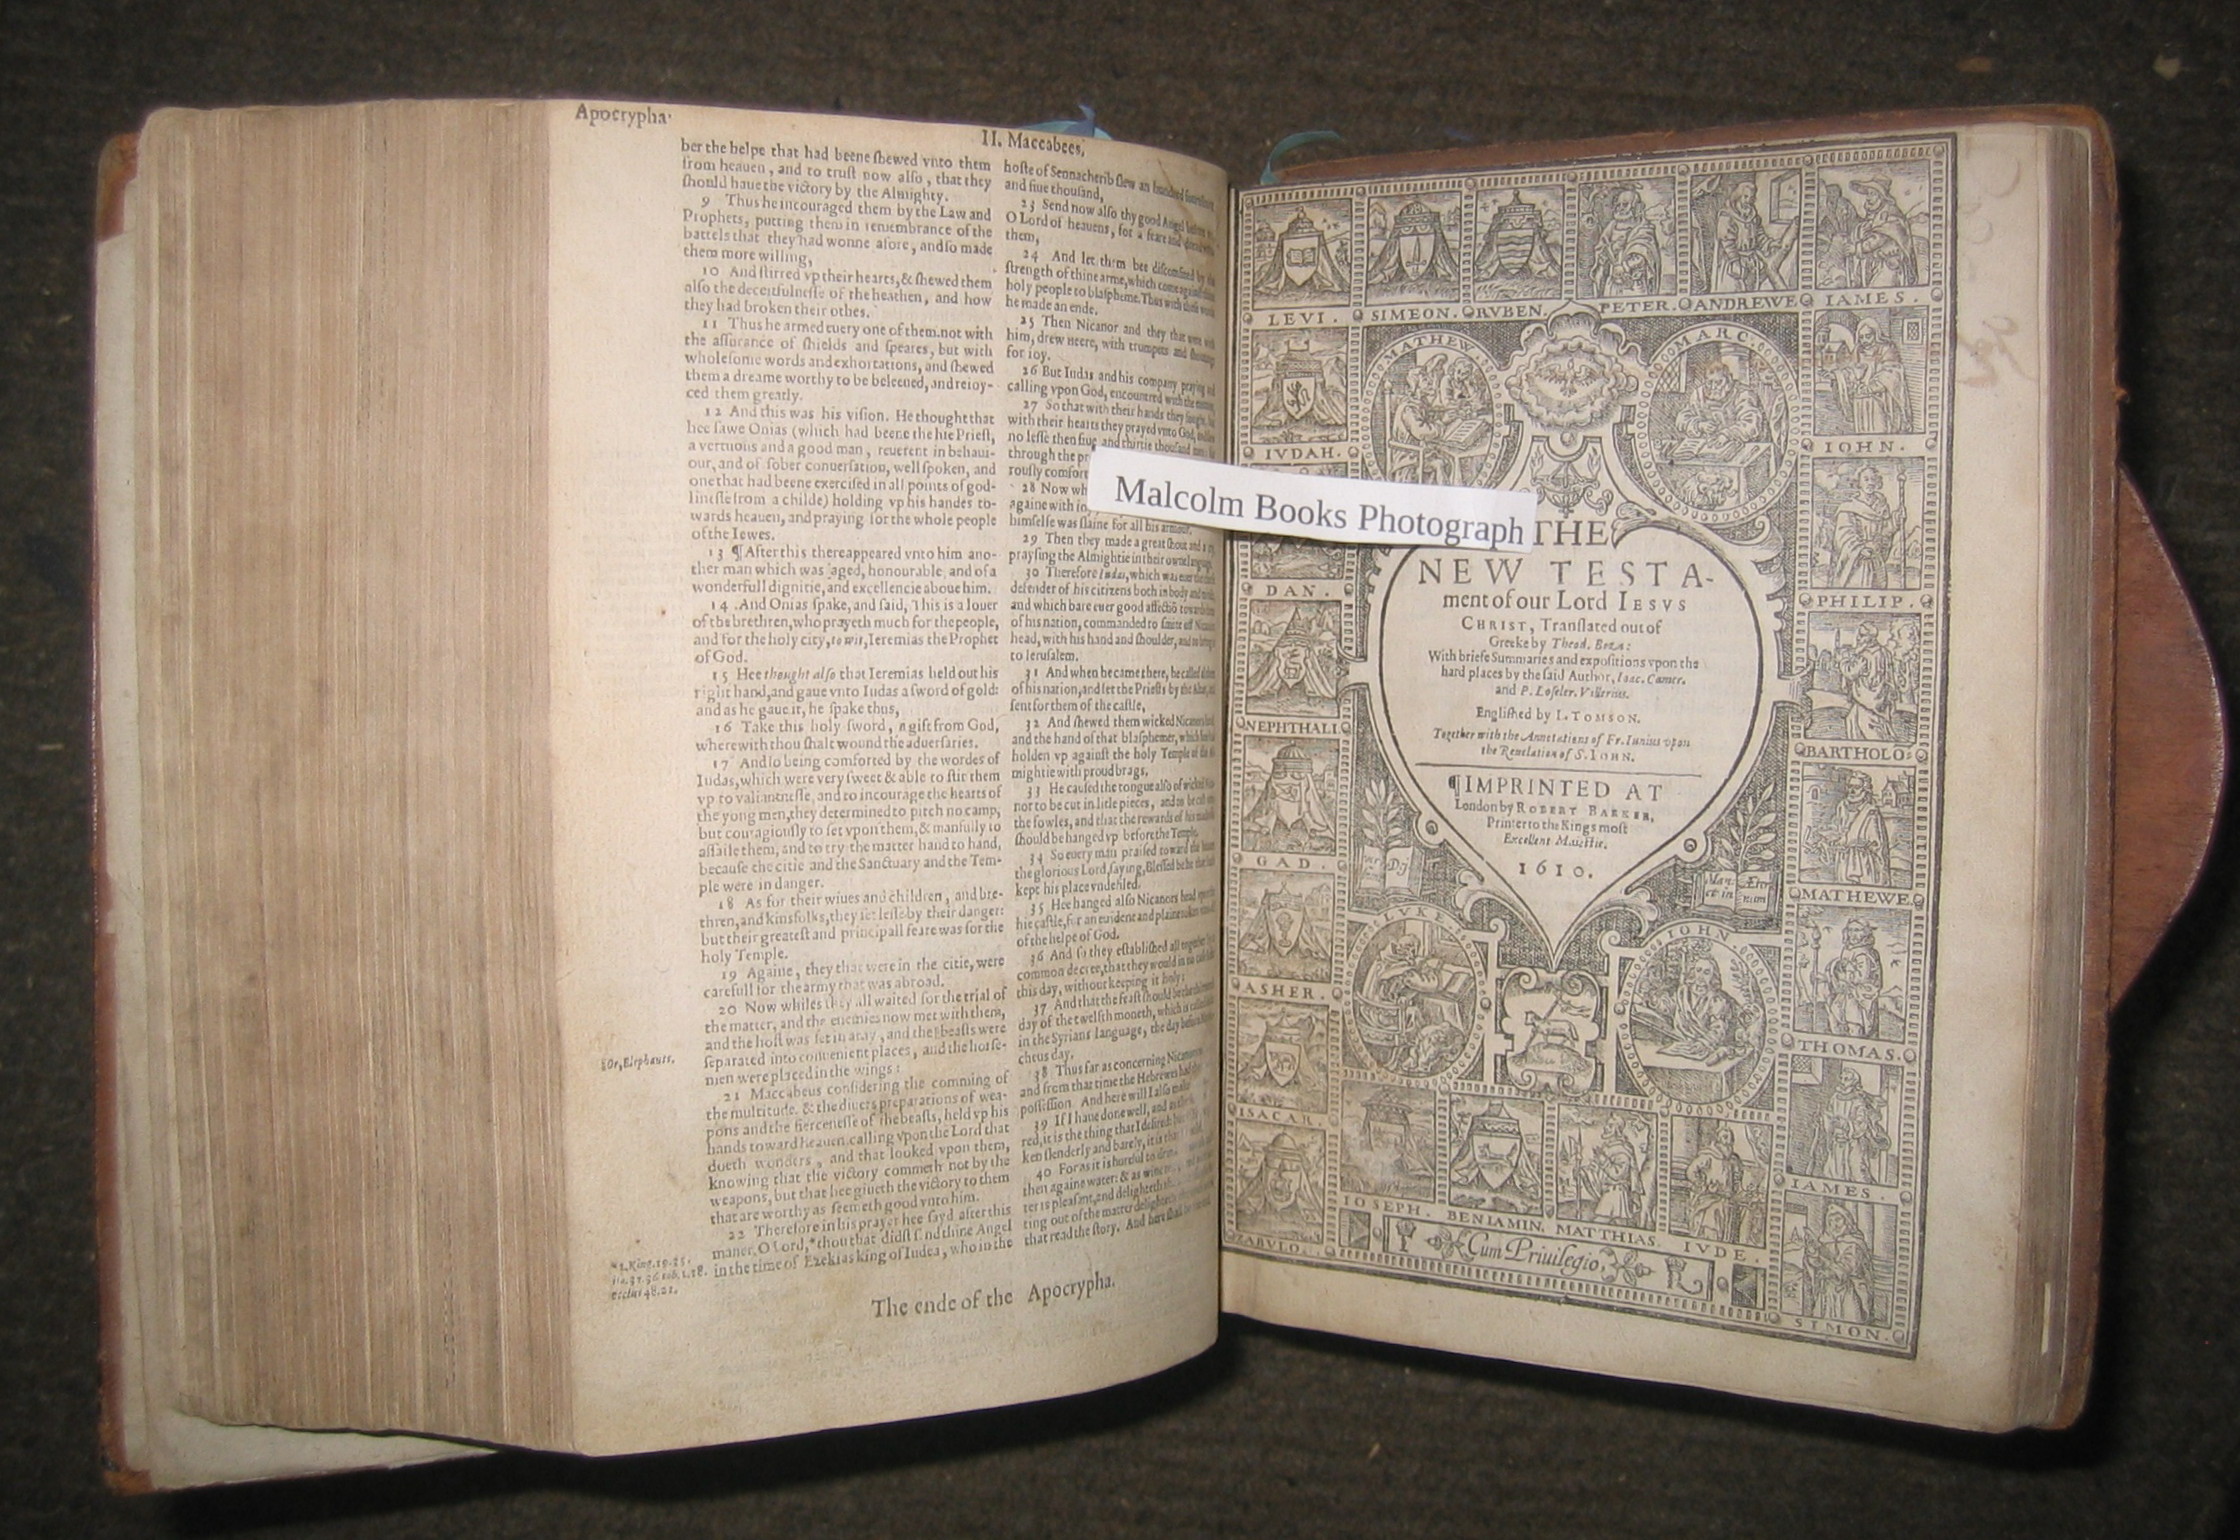 Apocrypha.
II. Maccabees,
ber the helpe that had beene ſhewed vnto them
from heauen, and to truſt now alſo, that they
ſhould haue the victory by the Almighty.
9 Thus he incouraged them by the Law and
Prophets, putting them in remembrance of the
battels that they had wonne afore, and ſo made
them more willing,
10 And ſtirred vp their hearts, & ſhewed them
alſo the deceitfulneſſe of the heathen, and how
they had broken their othes.
11 Thus he armed euery one of them, not with
the aſſurance of ſhields and ſpeares, but with
wholeſome words and exhortations, and ſhewed
them a dreame worthy to be beleeued, and reioy-
ced them greatly.
12 And this was his viſion. He thought that
hee ſawe Onias (which had beene the hie Prieſt,
a vertuous and a good man, reuerent in behaui-
our, and of ſober conuerſation, well ſpoken, and
one that had beene exerciſed in all points of god-
lineſſe from a childe) holding vp his handes to-
wards heauen, and praying for the whole people
of the Iewes.
13 ¶ After this there appeared vnto him ano-
ther man which was aged, honourable, and of a
wonderfull dignitie, and excellencie aboue him.
14 And Onias ſpake, and ſaid, This is a louer
of the brethren, who prayeth much for the people,
and for the holy city, to wit, Ieremias the Prophet
of God.
15 Hee thought alſo that Ieremias held out his
right hand, and gaue vnto Iudas a ſword of gold:
and as he gaue it, he ſpake thus,
16 Take this holy ſword, a gift from God,
wherewith thou ſhalt wound the aduerſaries.
17 And ſo being comforted by the wordes of
Iudas, which were very ſweet & able to ſtir them
vp to valiantneſſe, and to incourage the hearts of
the yong men, they determined to pitch no camp,
but couragiouſly to ſet vpon them, & manfully to
aſſaile them, and to try the matter hand to hand,
becauſe the citie and the Sanctuary and the Tem-
ple were in danger.
18 As for their wiues and children, and bre-
thren, and kinsfolks, they ſet leſſe by their danger:
but their greateſt and principall feare was for the
holy Temple.
19 Againe, they that were in the citie, were
carefull for the army that was abroad.
20 Now whiles they all waited for the trial of
the matter, and the enemies now met with them,
and the hoſt was ſet in aray, and the beaſts were
ſeparated into conuenient places, and the horſe-
men were placed in the wings:
‖Or, Elephants.
21 Maccabeus conſidering the comming of
the multitude, & the diuers preparations of wea-
pons and the fierceneſſe of the beaſts, held vp his
hands toward heauen, calling vpon the Lord that
doeth wonders, and that looked vpon them,
knowing that the victory commeth not by the
weapons, but that hee giueth the victory to them
that are worthy as ſeemeth good vnto him.
22 Therefore in his prayer hee ſayd after this
maner, O Lord, * thou that didſt ſend thine Angel
in the time of Ezekias king of Iudea, who in the
*2.King.19.35.
iſa.37.36. tob.1.18.
ecclus 48.21.
hoſte of Sennacherib ſlew an hundred
and fiue thouſand,
23 Send now alſo thy good Angel
O Lord of heauens, for a feare and
them,
24 And let them bee diſcomfited by the
ſtrength of thine arme, which come againſt
holy people to blaſpheme. Thus with theſe words
he made an ende.
25 Then Nicanor and they that were with
him, drew neere, with trumpets and
for ioy.
26 But Iudas and his company praying and
calling vpon God, encountred with the
27 So that with their hands they fought, but
with their hearts they prayed vnto God,
no leſſe then fiue and thirtie thouſand
through the
rouſly comfort
28 Now wh
againe with
himſelfe was ſlaine for all his armour.
29 Then they made a great ſhout and a cry,
prayſing the Almightie in their owne language.
30 Therefore Iudas, which was euer the
defender of his citizens both in body and
and which bare euer good affectiō towards
of his nation, commanded to ſmite off Nicanors
head, with his hand and ſhoulder, and to bring
to Ieruſalem.
31 And when he came there, he called
of his nation, and ſet the Prieſts by the Altar, and
ſent for them of the caſtle,
32 And ſhewed them wicked Nicanors head
and the hand of that blaſphemer, which
holden vp againſt the holy Temple of the
mightie with proud brags.
33 He cauſed the tongue alſo of wicked
nor to be cut in litle pieces, and to be
the fowles, and that the rewards of his
ſhould be hanged vp before the Temple.
34 So euery man praiſed toward the heauen
the glorious Lord, ſaying, Bleſſed be he that
kept his place vndefiled.
35 Hee hanged alſo Nicanors head vpon the
hie caſtle, for an euident and plaine token
of the helpe of God.
36 And ſo they eſtabliſhed all together by a
common decree, that they would in no
this day, without keeping it holy:
37 And that the feaſt ſhould be the
day of the twelfth moneth, which is called
in the Syrians language, the day before
cheus day.
38 Thus far as concerning Nicanors
and from that time the Hebrewes had the
poſſeſſion. And here will I alſo make
39 If I haue done well, and as
red, it is the thing that I deſired:
ken ſlenderly and barely, it is that
40 For as it is hurtful to drink
then againe water: & as wine
ter is pleaſant, and delighteth
ting out of the matter delighteth
that read the ſtory. And here ſhall
The ende of the Apocrypha.
Malcolm Books Photograph
LEVI. SIMEON. RVBEN. PETER. ANDREWE IAMES.
MATHEW. MARC.
IVDAH. IOHN.
DAN. PHILIP.
NEPHTHALI. BARTHOLO:
GAD. MATHEWE
ASHER. THOMAS.
ISACAR. IAMES.
ZABVLO. SIMON.
THE
NEW TESTA-
ment of our Lord IESVS
CHRIST, Tranſlated out of
Greeke by Theod. Beza:
With briefe Summaries and expoſitions vpon the
hard places by the ſaid Author, Ioac. Camer.
and P. Loſeler. Villerius.
Engliſhed by L. TOMSON.
Together with the Annotations of Fr. Iunius vpon
the Reuelation of S. IOHN.
¶IMPRINTED AT
London by ROBERT BARKER,
Printer to the Kings moſt
Excellent Maieſtie.
1610.
LVKE IOHN.
IOSEPH. BENIAMIN. MATTHIAS. IVDE.
Cum Priuilegio.